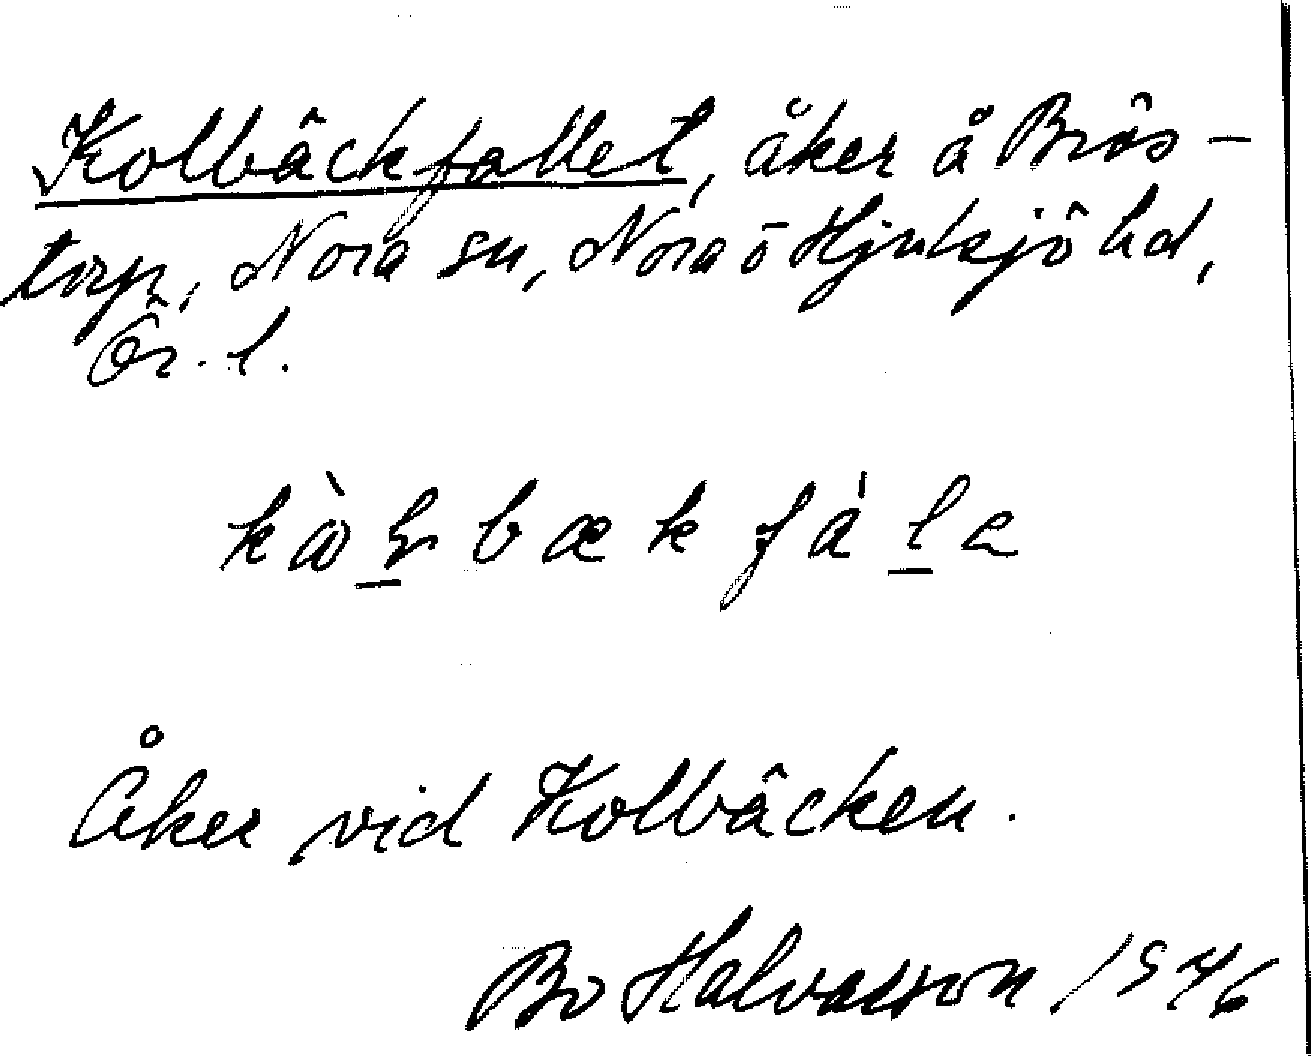 Kolbäckfallet, åker å Brös-
torp, Nora sn, Nora o Hjulsjö hd,
Ör. l.
Åker vid Kolbäcken.
Bo Halvarsson 1946